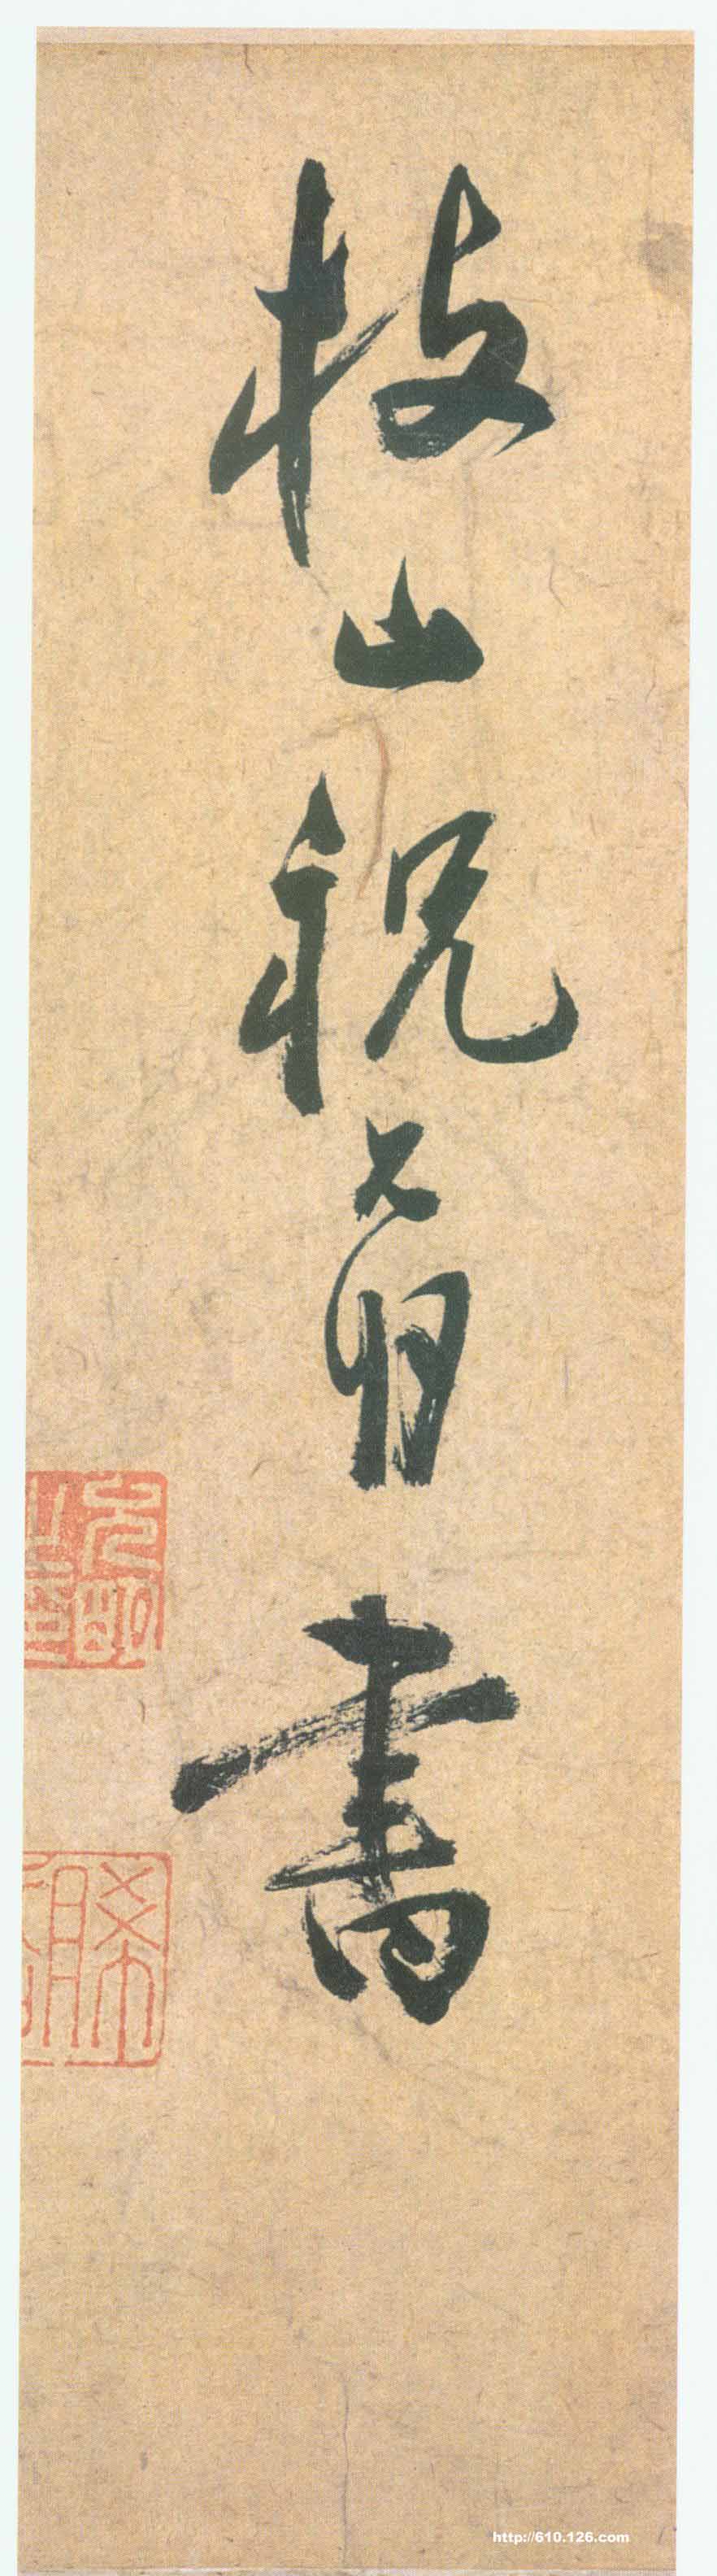 枝山祝允明書
http://610.126.com